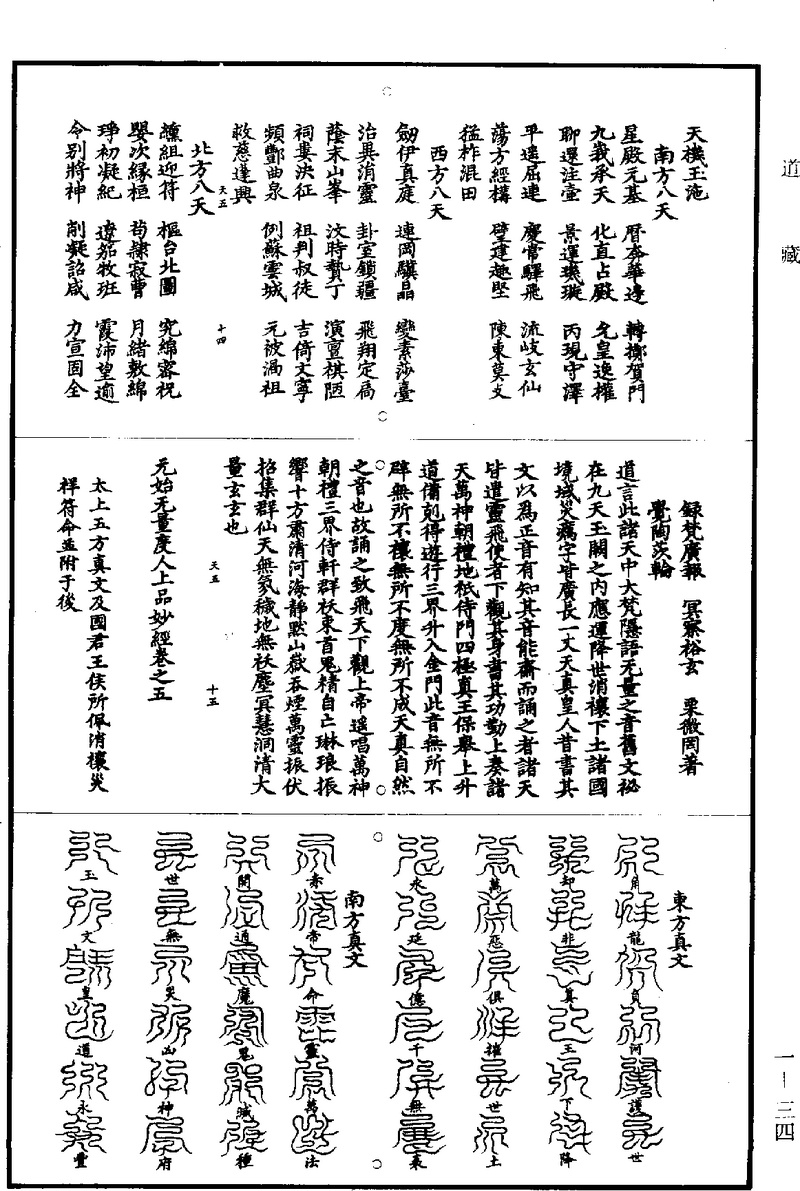 道藏
一—三四
天機玉洫
南方八天
星殿元基 曆奔華邊 轉擲賀門
九莪承天 化直占殿 允皇逸權
聊還注臺 景運璣璇 丙現守澤
平遠屈連 慶常驛飛 流岐玄仙
蕩方經構 壁建趣堅 陳東莫支
猛柞混田
西方八天
劒伊真庭 連岡驥晶 變素莎臺
治異消靈 卦室鎖疆 飛翔定扃
蔭末山峯 汶時贄丁 演亶棋陋
祠婁決征 祖判叔徒 吉倚文寧
頻酆曲泉 例蘇雲城 元被渦祖
救慈逢興
天五 十四
北方八天
纁組迎符 樞台北圖 究綿客祝
嬰次緣桓 荀隸寂曹 月緒敷綿
琤初凝紀 遼笳牧班 霞沛望逾
令別將神 削凝詔咸 力宣固全
録梵廣報 冥察裕玄 栗微罔著
覺陶茨輪
道言此諸天中大梵隱語无量之音舊文祕
在九天玉闕之内應運降世消禳下土諸國
境域災癘字皆廣長一丈天真皇人昔書其
文以為正音有知其音能齋而誦之者諸天
皆遣靈飛使者下觀其身書其功勤上奏諸
天萬神朝禮地祇侍門四極真王保舉上升
道備剋得遊行三界升入金門此音無所不
辟無所不禳無所不度無所不成天真自然
之音也故誦之致飛天下觀上帝遥唱萬神
朝禮三界侍軒群妖束首鬼精自亡琳琅振
響十方肅清河海静默山嶽吞煙萬靈振伏
招集群仙天無氛穢地無妖塵冥慧洞清大
量玄玄也
天五 十五
元始无量度人上品妙經卷之五
太上五方真文及國君王侯所佩消禳災
祥符命並附于後
東方真文
角龍負河護世
却非真王下降
萬惡俱摧世土
永延億千無衰
南方真文
赤帝命靈萬法
開通魔鬼賊種
世無災凶神府
玉文皇道永豐